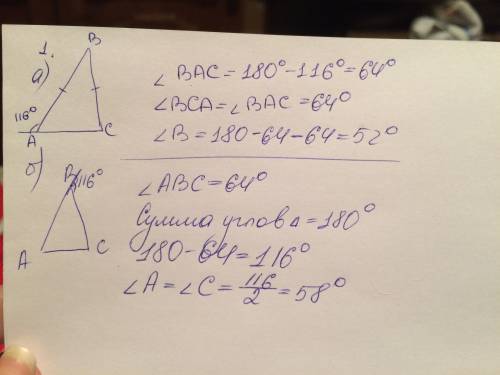 1.
а)
B
116°
A
C
∠BAC=180°-116°=64°
∠BCA=∠BAC=64°
∠B=180-64-64=52°
б)
B
116°
A
C
∠ABC=64°
Сумма углов Δ=180°
180-64=116°
∠A=∠C=116/2=58°